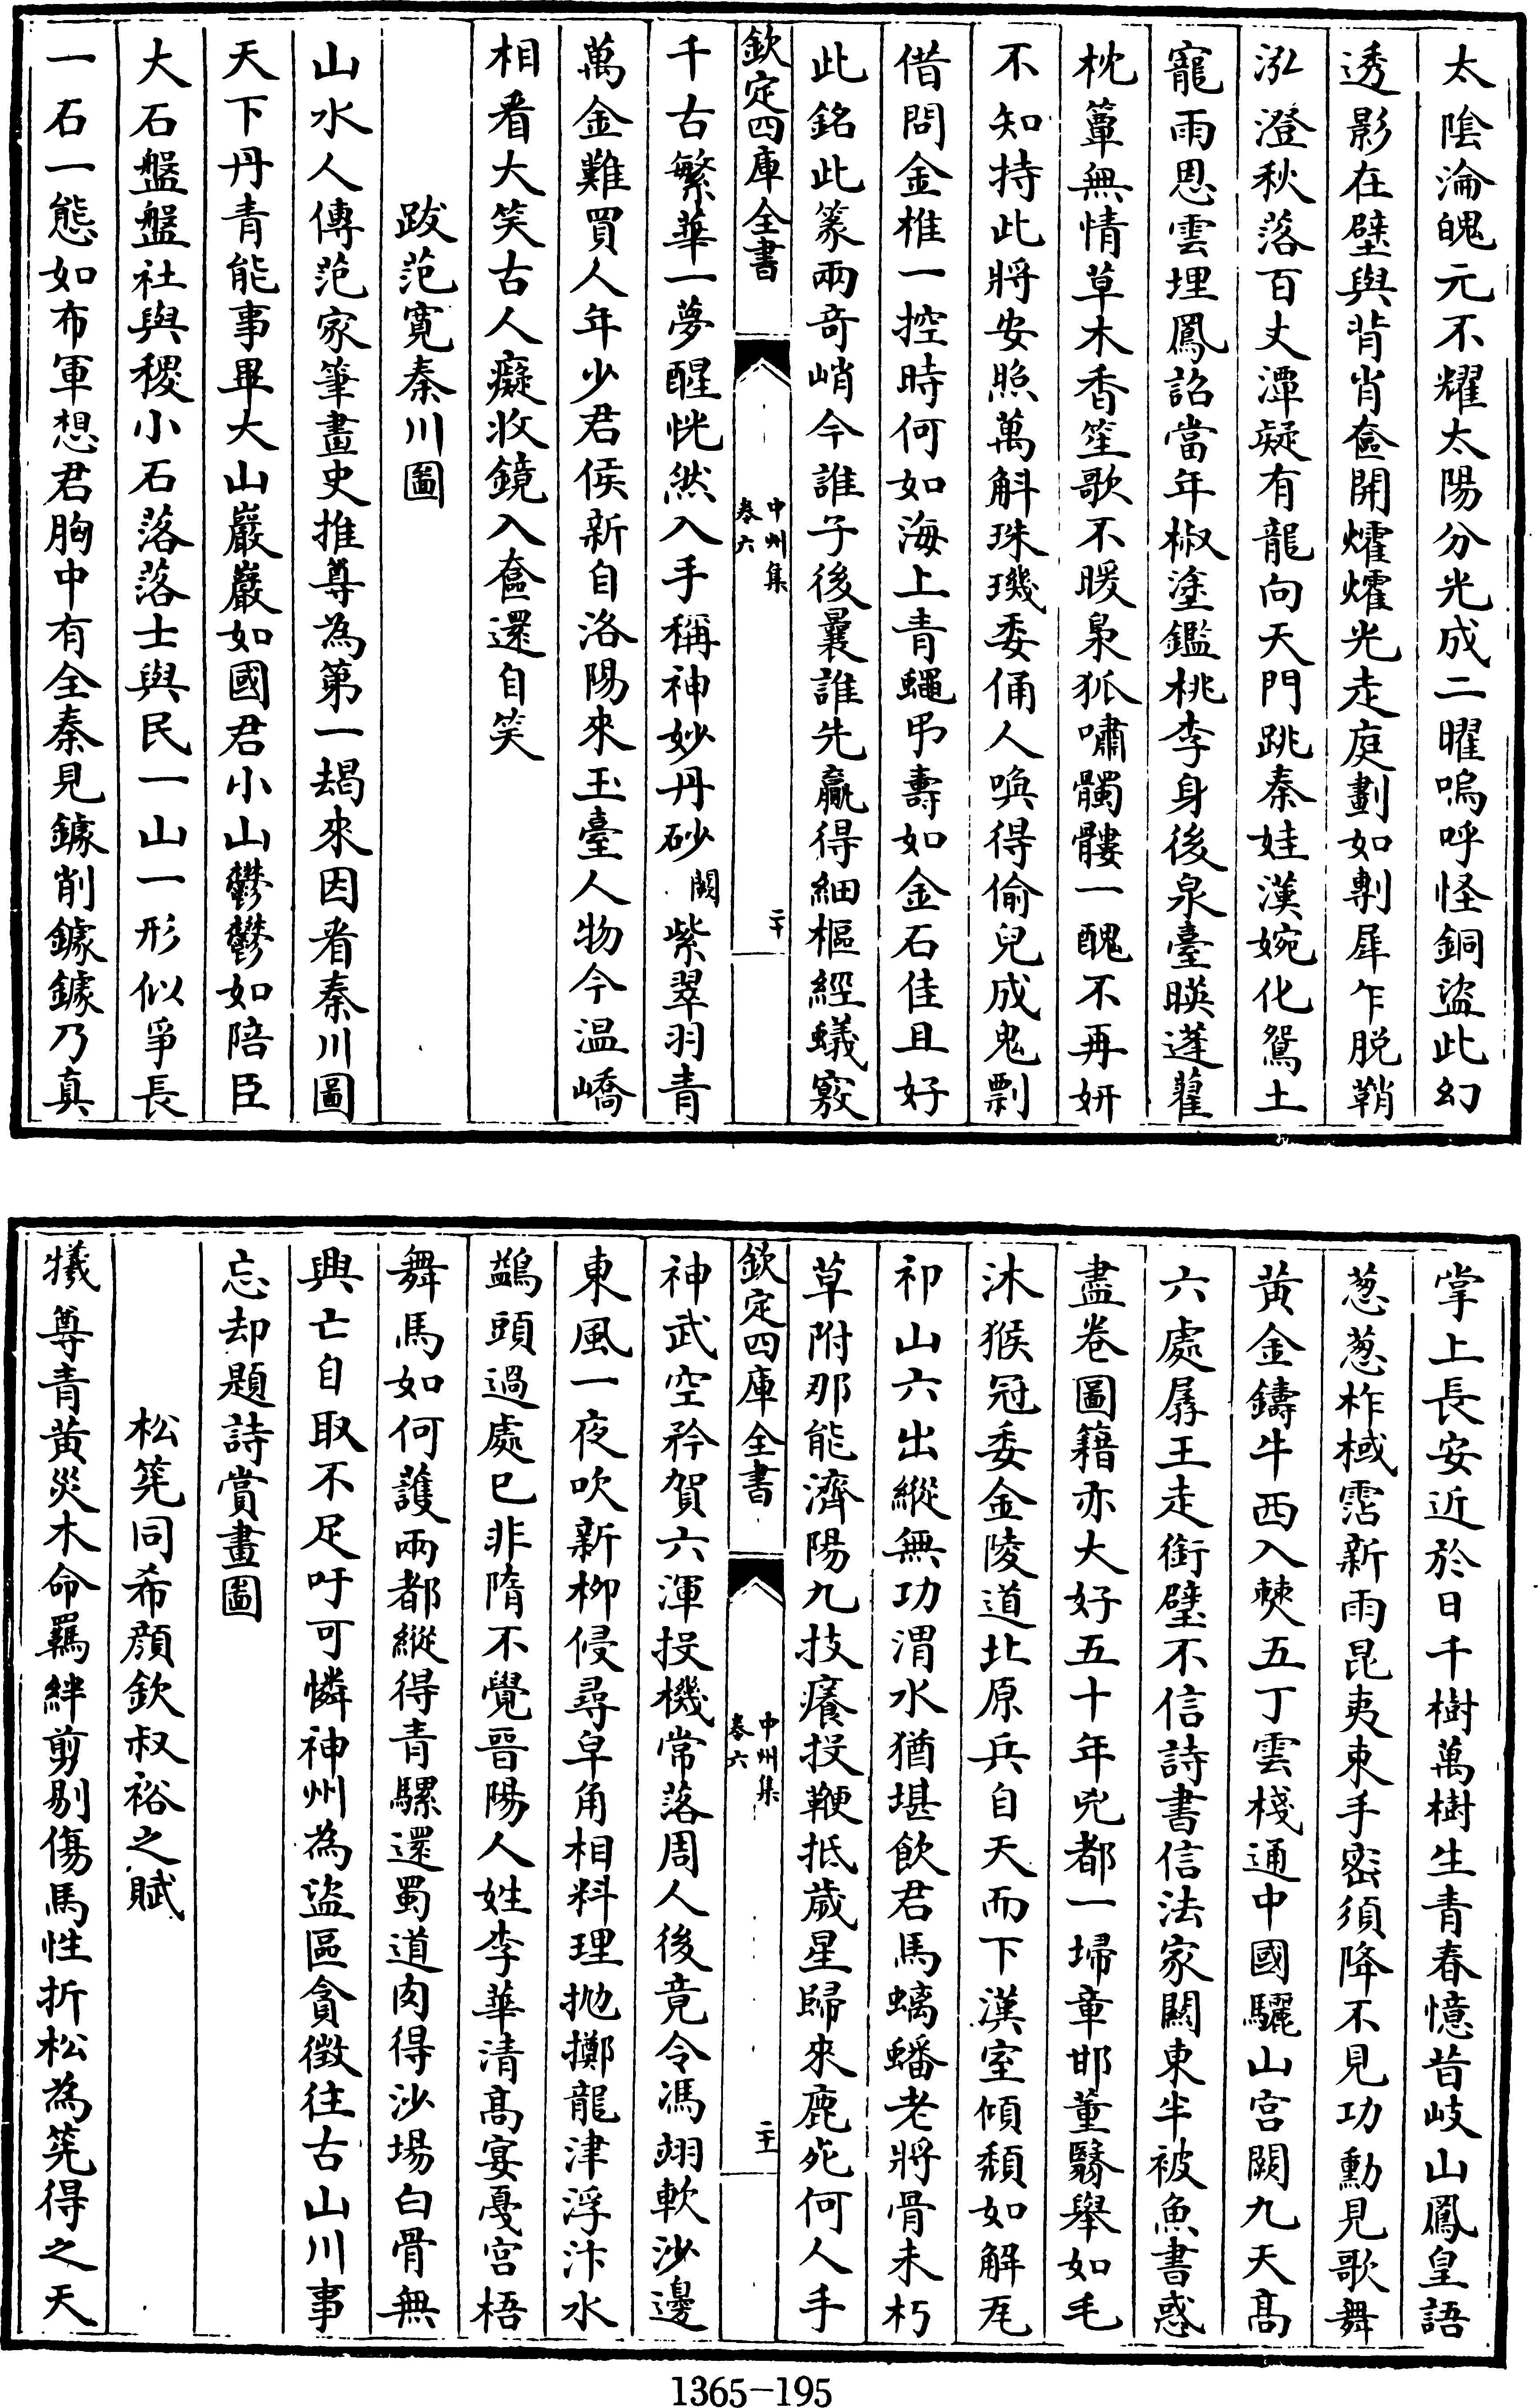 太隂淪魄元不耀太陽分光成二曜嗚呼怪銅盜此幻
透影在壁與背肖奩開爠爠光走庭劃如剸犀乍脱鞘
泓澄秋落百丈潭疑有龍向天門跳秦娃漢婉化鴛土
寵雨恩雲埋鳳詔當年椒塗鑑桃李身後泉臺暎蓬藋
枕簟無情草木香笙歌不暖梟狐嘯髑髏一醜不再妍
不知持此將安照萬斛珠璣委俑人喚得偷兒成鬼剽
借問金椎一控時何如海上青蠅弔壽如金石佳且好
此銘此篆兩奇峭今誰子後曩誰先贏得細樞經蟻竅
欽定四庫全書
中州集
卷六
二十
千古繁華一夢醒恍然入手稱神妙丹砂闕紫翠羽青
萬金難買人年少君侯新自洛陽來玉臺人物今温嶠
相看大笑古人癡收鏡入奩還自笑
跋范寛秦川圖
山水人傳范家筆畫史推尊為第一朅來因看秦川圖
天下丹青能事畢大山巖巖如國君小山鬱鬱如陪臣
大石盤盤社與稷小石落落士與民一山一形似爭長
一石一態如布軍想君胸中有全秦見鐻削鐻鐻乃真
掌上長安近於日千樹萬樹生青春憶昔岐山鳳皇語
葱葱柞棫霑新雨昆夷束手密須降不見功勳見歌舞
黄金鑄牛西入僰五丁雲棧通中國驪山宫闕九天髙
六處孱王走銜璧不信詩書信法家闗東半被魚書惑
盡卷圖籍亦大好五十年兇都一埽章邯董翳舉如毛
沐猴冠委金陵道北原兵自天而下漢室傾頽如解瓦
祁山六出縱無功渭水猶堪飲君馬螭蟠老將骨未朽
草附那能濟陽九技癢投鞭抵歲星歸來鹿死何人手
欽定四庫全書
中州集
卷六
二十一
神武空矜賀六渾投機常落周人後竟令馮翊軟沙邊
東風一夜吹新柳侵尋皁角相料理抛擲龍津浮汴水
鷁頭過處已非隋不覺晉陽人姓李華清髙宴戞宫梧
舞馬如何護兩都縱得青騾還蜀道肉得沙場白骨無
興亡自取不足吁可憐神州為盜區貪徴往古山川事
忘却題詩賞畫圖
松筅同希顔欽叔裕之賦
犧尊青黄災木命羈絆剪剔傷馬性折松為筅得之天
1365-195